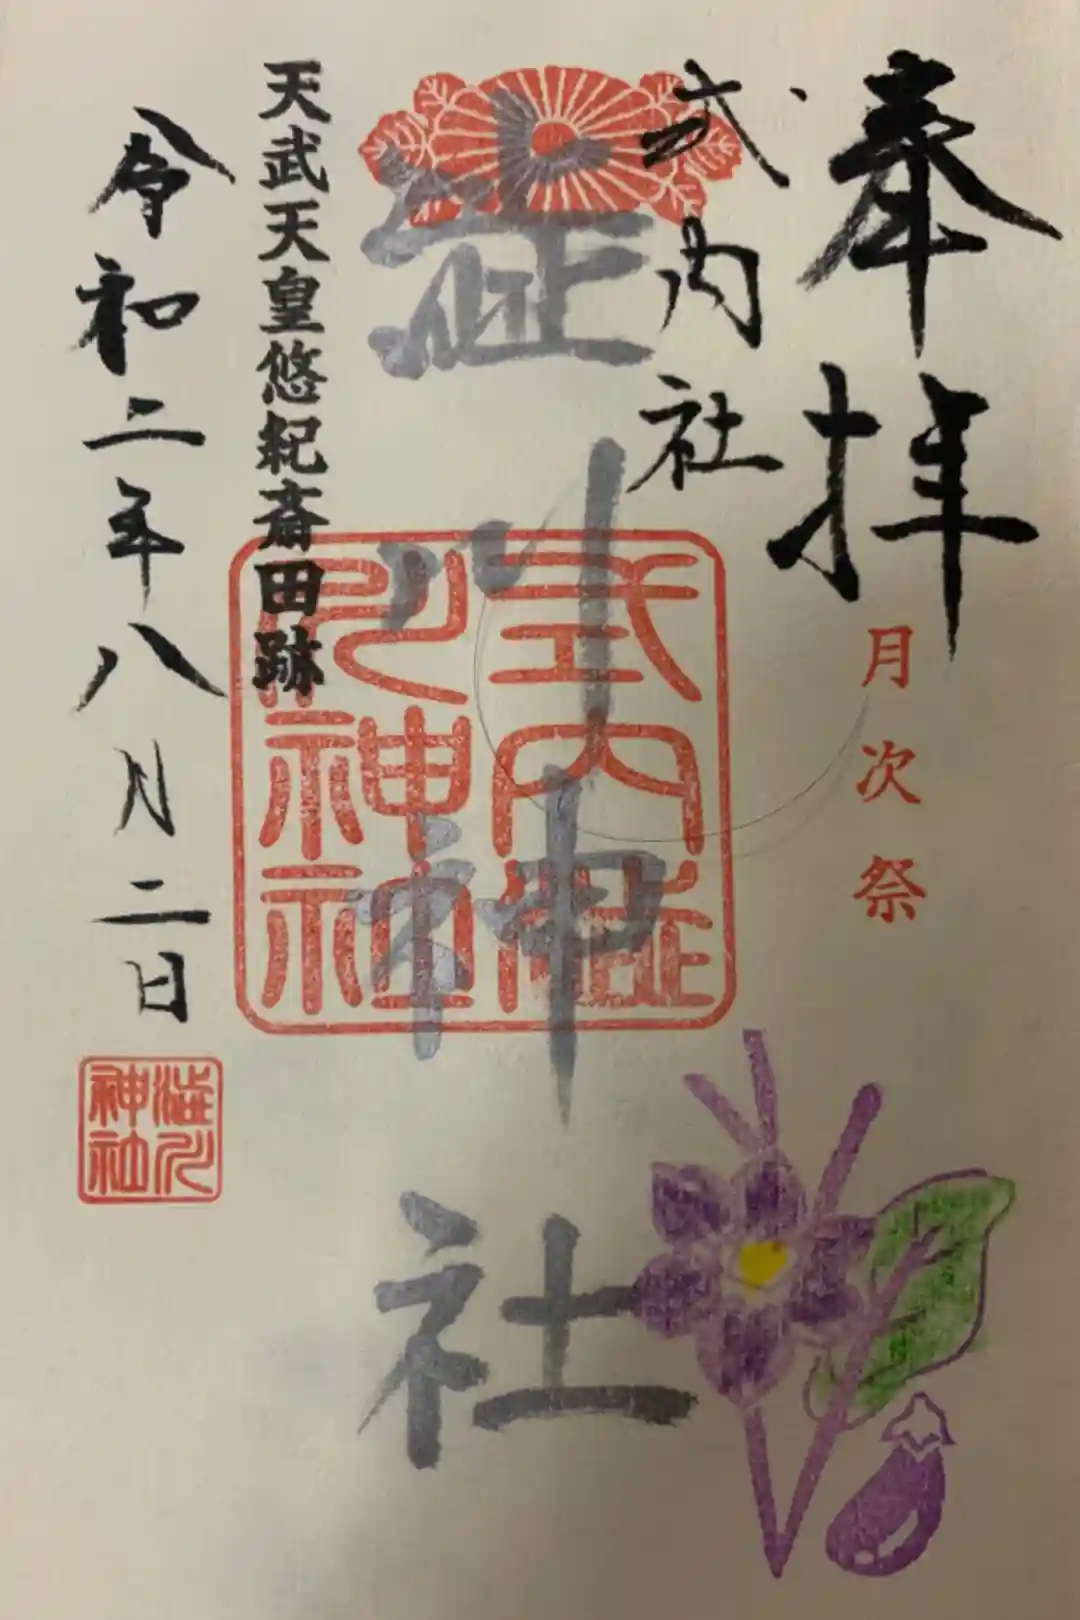 奉拝
月次祭
式内社
澁川神社
式内澁
川神社
天武天皇悠紀斎田跡
令和二年八月二日
澁川
神社